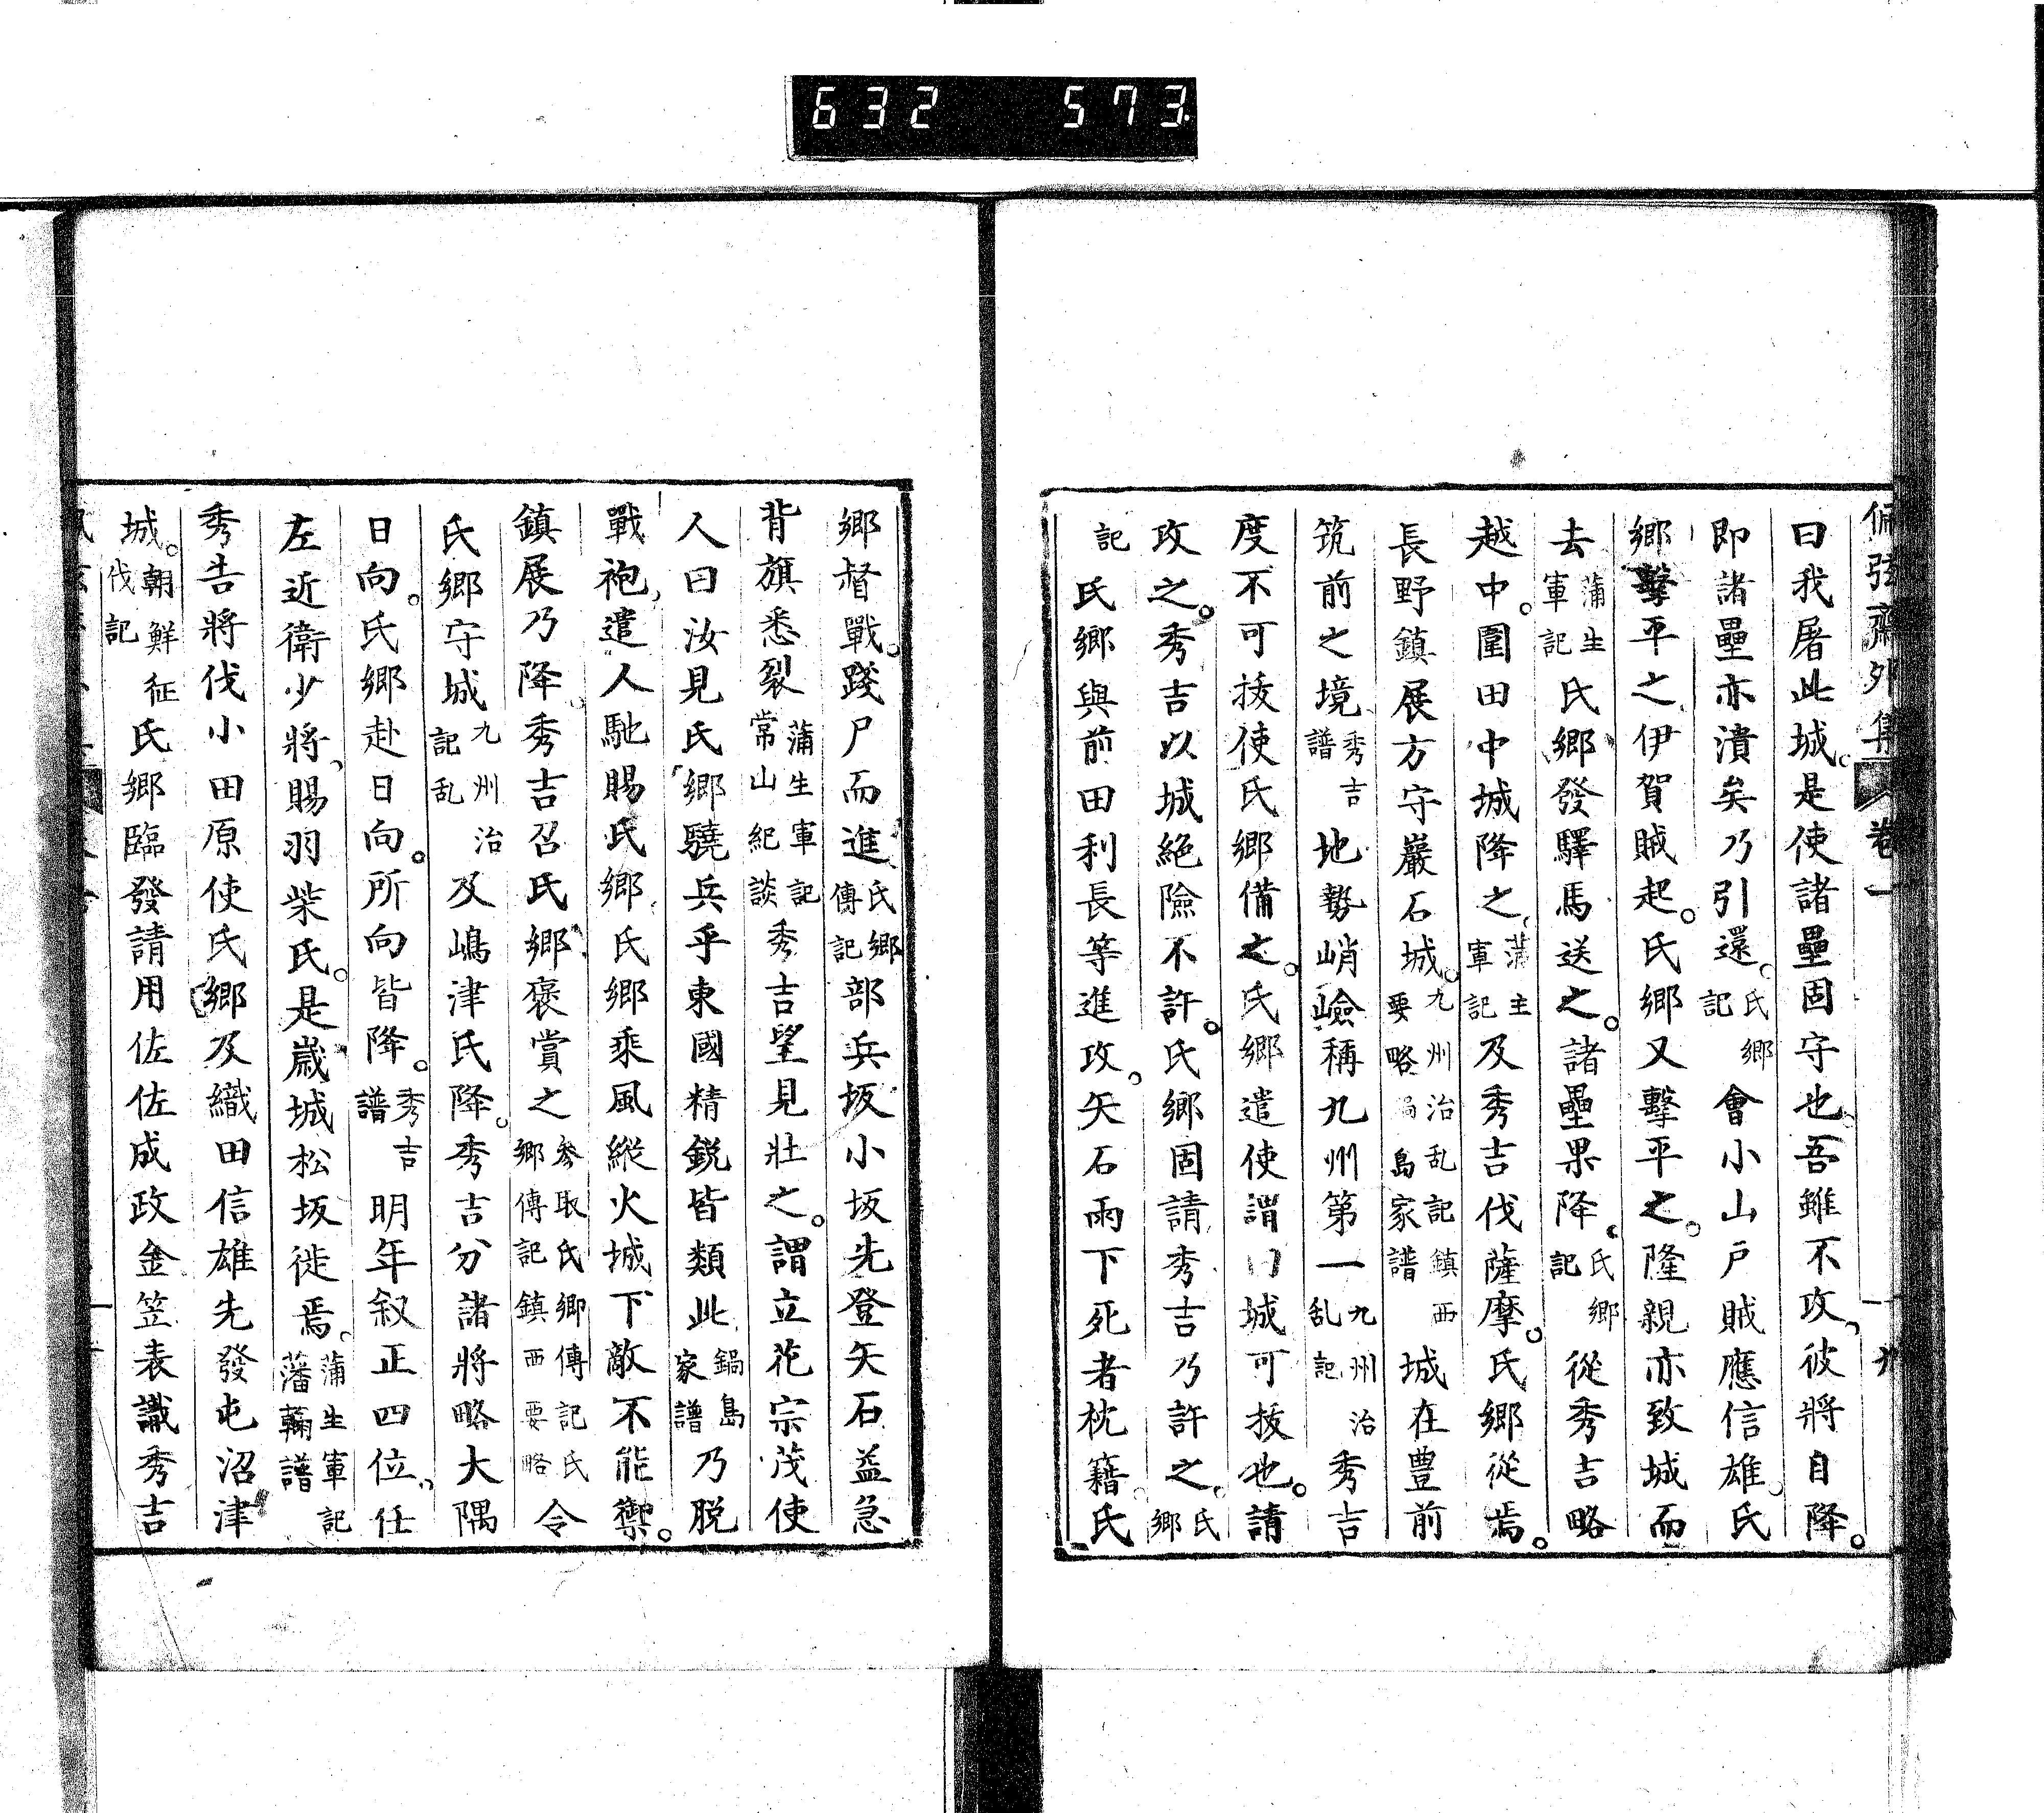 632 573
佩弦齋外集 卷一
曰我屠此城。是使諸壘固守也。吾雖不攻、彼將自降。
即諸壘亦潰矣乃引還。氏郷記會小山戸賊應信雄。氏
郷擊平之伊賀賊起。氏郷又擊平之。隆親亦致城而
去蒲生軍記氏郷發驛馬送之。諸壘果降、氏郷記從秀吉略
越中。圍田中城降之、蒲生軍記及秀吉伐薩摩。氏郷從焉。
長野鎮展方守巖石城。九州治乱記鎮西要略鍋島家譜城在豊前
筑前之境秀吉譜地勢峭嶮稱九州第一九州治乱記秀吉
度不可拔使氏郷備之。氏郷遣使謂曰城可拔也。請
攻之。秀吉以城絶險不許。氏郷固請秀吉乃許之。氏郷
記氏郷與前田利長等進攻、矢石雨下死者枕籍。氏
郷督戰。踐尸而進氏郷傳記部兵坂小坂先登矢石益急
背旗悉裂蒲生軍記常山紀談秀吉望見壯之。謂立花宗茂使
人曰汝見氏郷驍兵乎東國精鋭皆類此鍋島家譜乃脱
戰袍、遣人馳賜氏郷氏郷乘風縱火城下敵不能禦。
鎮展乃降。秀吉召氏郷褒賞之參取氏郷傳記氏郷傳記鎮西要略令
氏郷守城九州治乱記及嶋津氏降。秀吉分諸將略大隅
日向。氏郷赴日向。所向皆降。秀吉譜明年叙正四位、任
左近衛少將、賜羽柴氏。是歳城松坂徙焉。蒲生軍記藩輪譜
秀吉將伐小田原使氏郷及織田信雄先發屯沼津
城。朝鮮征伐記氏郷臨發請用佐佐成政金笠表識秀吉